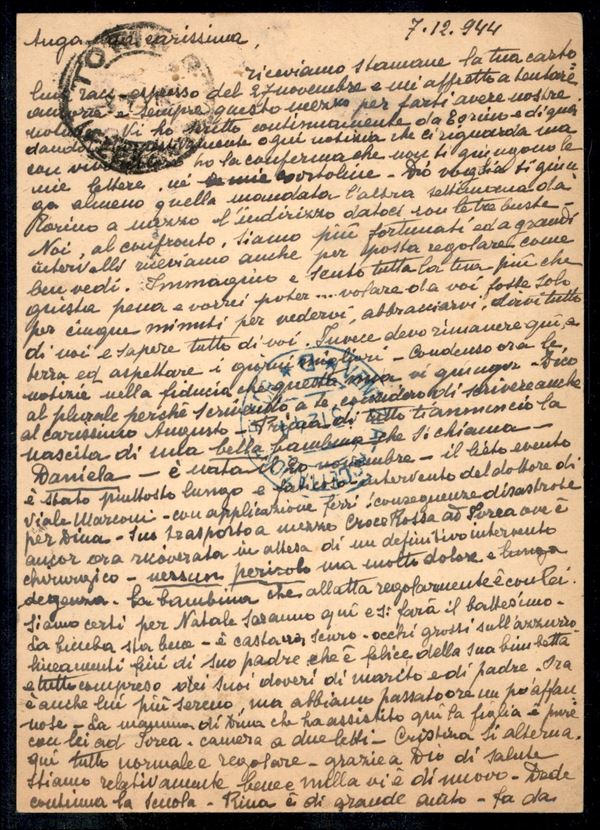 7.12.944
carissima,
riceviamo stamane la tua carto
lina racc. espresso del 27 novembre e mi affretto a tentare
ancora e sempre questo mezzo per farti avere nostre
Vi ho scritto continuamente da e di qui
dando ogni notizia che ci riguarda ma
con ho la conferma che non ti giungono le
mie lettere, nè le mie cartoline - Dio voglia ti giun
ga almeno quella mandata l'altra settimana da
Torino a mezzo l'indirizzo datoci con le tre buste -
Noi, al confronto, siamo più fortunati ed a grandi
intervalli riceviamo anche per posta regolare come
ben vedi. Immagino e sento tutta la tua più che
giusta pena e vorrei poter... volare da voi fosse solo
per cinque minuti per vedervi, abbracciarvi, dirvi tutto
di noi e sapere tutto di voi. Invece devo rimanere qui, a
terra ed aspettare i giorni migliori - Condenso ora le
notizie nella fiducia che questa mia vi giunga - Dico
al plurale perchè scrivendo a te considero di scrivere anche
al carissimo Augusto - Prima di tutto ti annuncio la
nascita di una bella bambina che si chiama -
Daniela - è nata il 20 novembre - il lieto evento
è stato piuttosto lungo e intervento del dottore di
Viale Marconi - con applicazione ferri! conseguenze disastrose
per Dina - Suo trasporto a mezzo Croce Rossa ad Ivrea ove è
ancor ora ricoverata in attesa di un definitivo intervento
chirurgico - nessun pericolo ma molto dolore e lunga
degenza - La bambina che allatta regolarmente è con lei.
Siamo certi per Natale saranno qui e si farà il battesimo -
La bimba sta bene - è castano scuro - occhi grossi sull'azzurro
lineamenti fini di suo padre che è felice della sua bimbetta
e tutto compreso dei suoi doveri di marito e di padre - Ora
è anche lui più sereno, ma abbiamo passato ore un po' affan
nose - La mamma di Dina che ha assistito qui la figlia è pure
con lei ad Ivrea - camera a due letti - Cristina si alterna.
qui tutto normale e regolare - grazie a Dio di salute
stiamo relativamente bene e nulla vi è di nuovo - Dede
continua la scuola - Rina è di grande aiuto - fa da